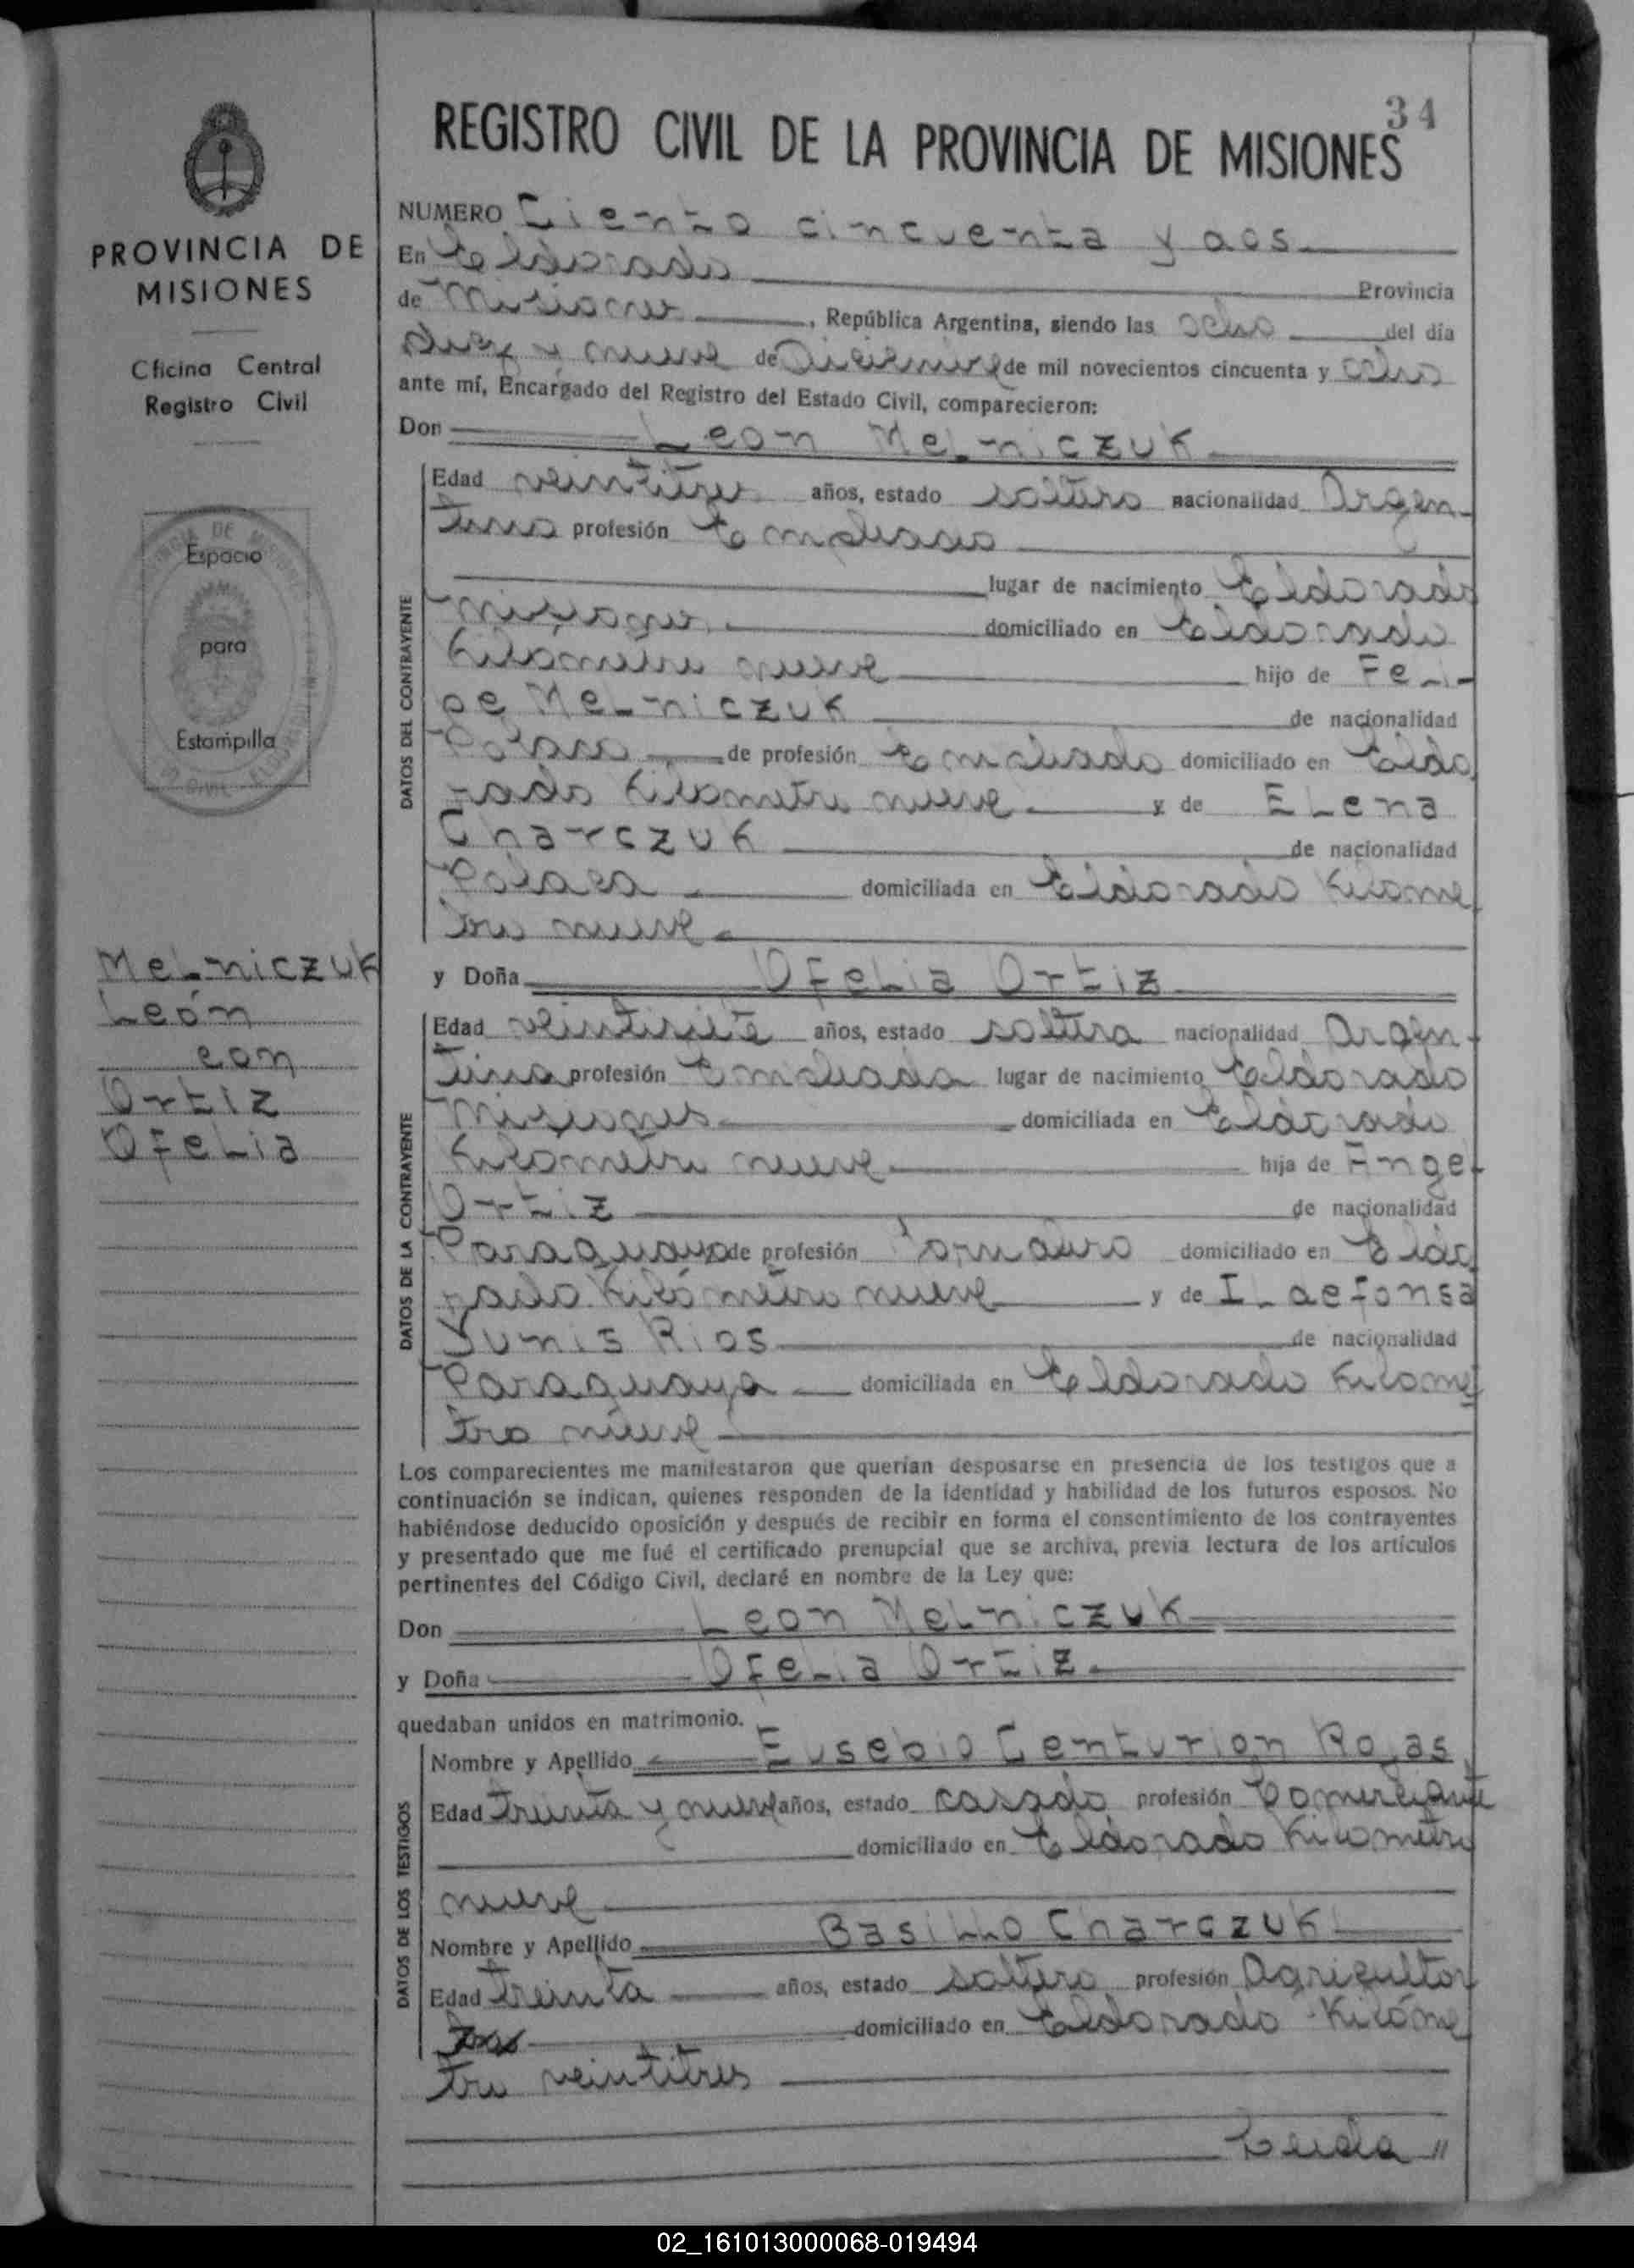 34
REGISTRO CIVIL DE LA PROVINCIA DE MISIONES
PROVINCIA DE
MISIONES
Oficina Central
Registro Civil
Espacio
para
Estampilla
MeLniczuk
León
con
Ortiz
OfeLia
NUMERO Ciento cincuenta y dos
En Eldorado Provincia
de Misiones, República Argentina, siendo las ocho del día
diez y nueve de Diciembre de mil novecientos cincuenta y ocho
ante mí, Encargado del Registro del Estado Civil, comparecieron:
Don Leon MeLniczuk
DATOS DEL CONTRAYENTE
Edad veintitres años, estado soltero nacionalidad Argen-
tino profesión Empleado
lugar de nacimiento Eldorado
Misiones domiciliado en Eldorado
Kilometro nueve hijo de FeLi-
pe MeLniczuk de nacionalidad
Polaco de profesión Empleado domiciliado en Eldo
rado Kilometro nueve y de ELena
Charczuk de nacionalidad
Polaca domiciliada en Eldorado Kilome
tro nueve
y Doña OfeLia Ortiz
DATOS DE LA CONTRAYENTE
Edad veintisiete años, estado soltera nacionalidad Argen-
tina profesión Empleada lugar de nacimiento Eldorado
Misiones domiciliada en Eldorado
Kilometro nueve hija de AngeL
Ortiz de nacionalidad
Paraguayo de profesión Jornalero domiciliado en Eldo
rado Kilómetro nueve y de ILdefonsa
Yunis Rios de nacionalidad
Paraguaya domiciliada en Eldorado Kilome
tro nueve
Los comparecientes me manifestaron que querían desposarse en presencia de los testigos que a
continuación se indican, quienes responden de la identidad y habilidad de los futuros esposos. No
habiéndose deducido oposición y después de recibir en forma el consentimiento de los contrayentes
y presentado que me fué el certificado prenupcial que se archiva, previa lectura de los artículos
pertinentes del Código Civil, declaré en nombre de la Ley que:
Don Leon MeLniczuk
y Doña OfeLia Ortiz
quedaban unidos en matrimonio.
DATOS DE LOS TESTIGOS
Nombre y Apellido Eusebio Centurion Rojas
Edad treinta y nueve años, estado casado profesión Comerciante
domiciliado en Eldorado Kilometro
nueve
Nombre y Apellido BasiLio Charczuk
Edad treinta años, estado soltero profesión Agricultor
domiciliado en Eldorado Kilóme
tro veintitres
02_161013000068-019494